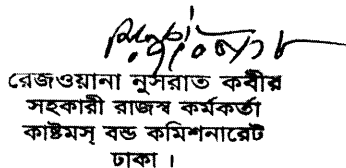 রেজওয়ানা নুসরাত কবীর
সহকারী রাজস্ব কর্মকর্তা
কাষ্টমস্ বন্ড কমিশনারেট
ঢাকা ।